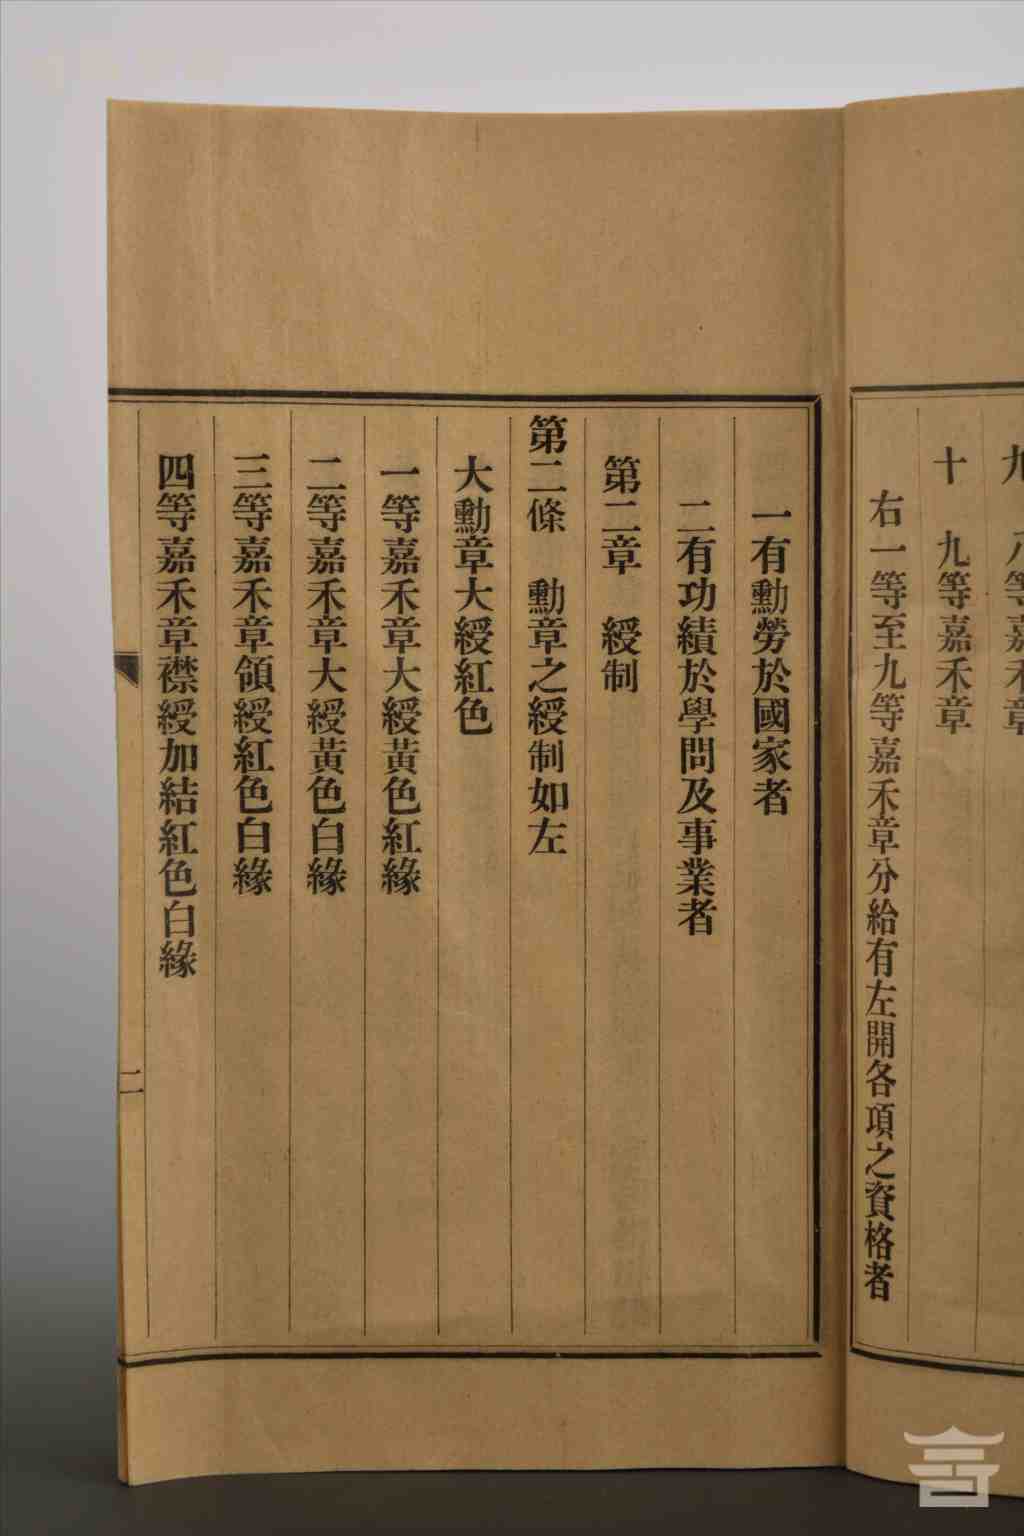 八等嘉禾章
十　九等嘉禾章
右一等至九等嘉禾章分給有左開各項之資格者
一有勳勞於國家者
二有功績於學問及事業者
第二章　綬制
第二條　勳章之綬制如左
大勳章大綬紅色
一等嘉禾章大綬黃色紅緣
二等嘉禾章大綬黃色白緣
三等嘉禾章領綬紅色白緣
四等嘉禾章襟綬加結紅色白緣
二